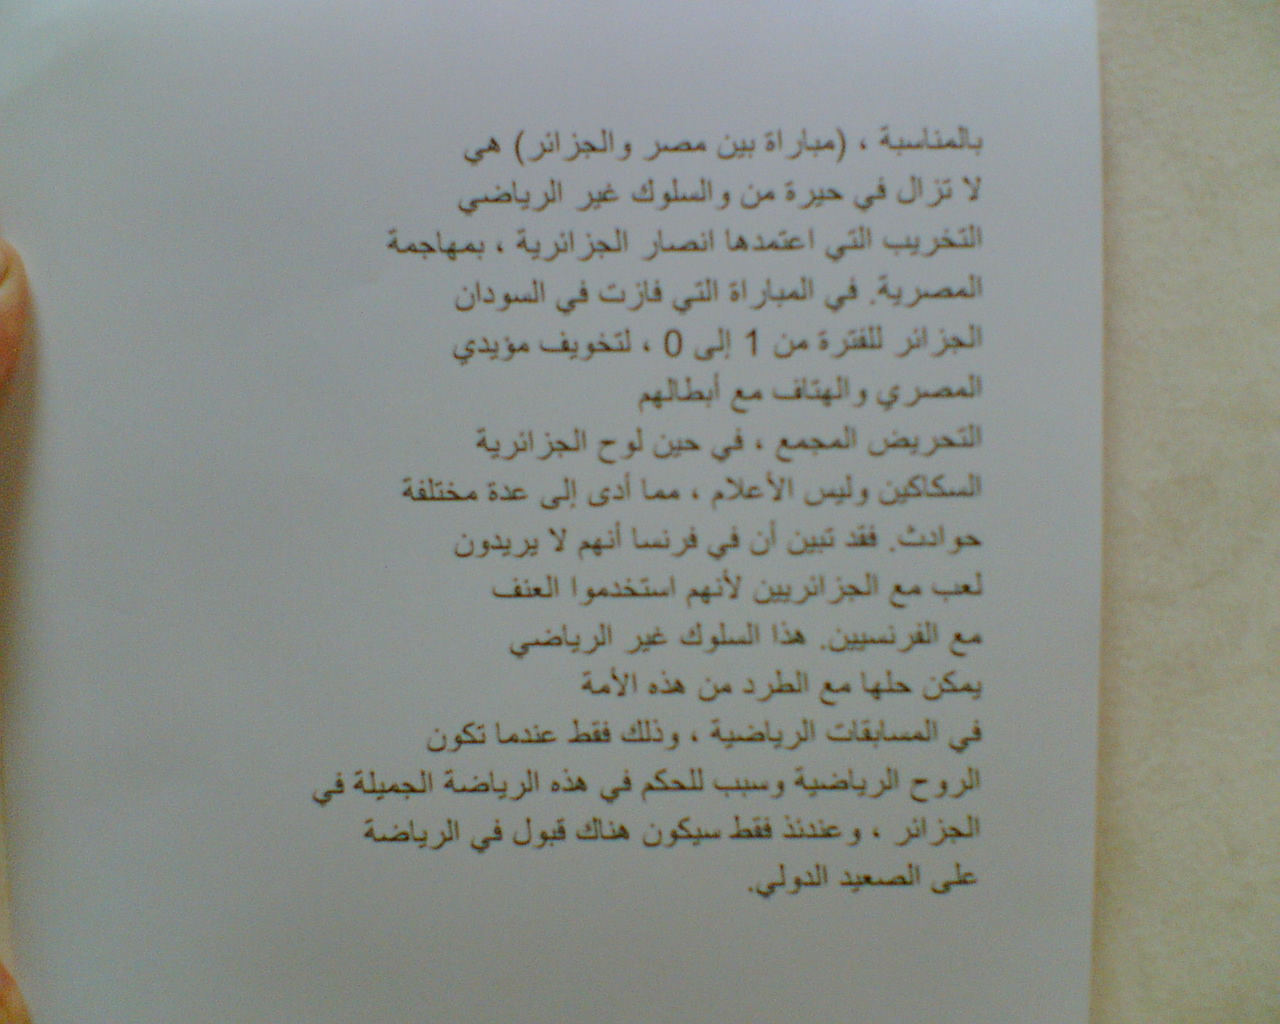 بالمناسبة ، (مباراة بين مصر والجزائر) هي
لا تزال في حيرة من والسلوك غير الرياضي
التخريب التي اعتمدها انصار الجزائرية ، بمهاجمة
المصرية. في المباراة التي فازت في السودان
الجزائر للفترة من 1 إلى 0 ، لتخويف مؤيدي
المصري والهتاف مع أبطالهم
التحريض المجمع ، في حين لوح الجزائرية
السكاكين وليس الأعلام ، مما أدى إلى عدة مختلفة
حوادث. فقد تبين أن في فرنسا أنهم لا يريدون
لعب مع الجزائريين لأنهم استخدموا العنف
مع الفرنسيين. هذا السلوك غير الرياضي
يمكن حلها مع الطرد من هذه الأمة
في المسابقات الرياضية ، وذلك فقط عندما تكون
الروح الرياضية وسبب للحكم في هذه الرياضة الجميلة في
الجزائر ، وعندئذ فقط سيكون هناك قبول في الرياضة
على الصعيد الدولي.